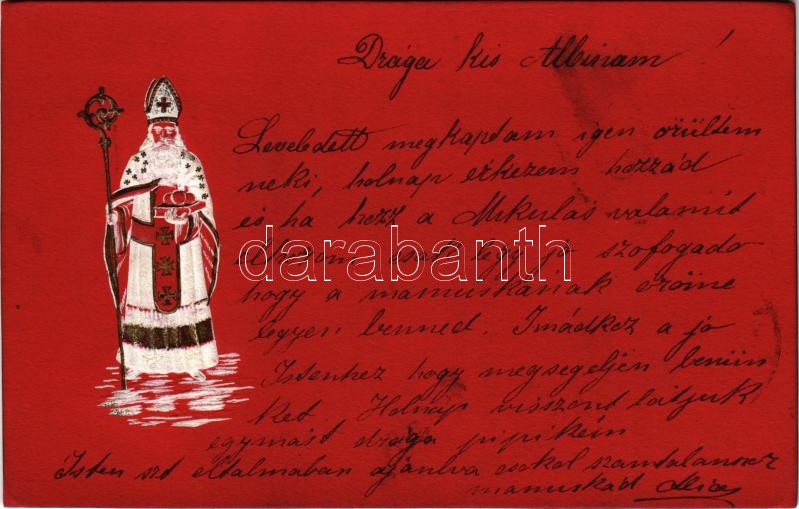 Drága kis Albinam!
Leveledett megkaptam igen örültem
neki, holnap erkezem hozzád
és ha hozz a Mikulás valamit
elhozom csak légy jo szofogado
darabanth
hogy a mamuskának öröme
légyen benned. Imádkoz a jo
Istenhez hogy megsegéljen benün
ket. Holnap viszont látjuk
egymást drága pipikém
Isten szt oltalmában ajánlva csokol szamtalanszor
mamuskád